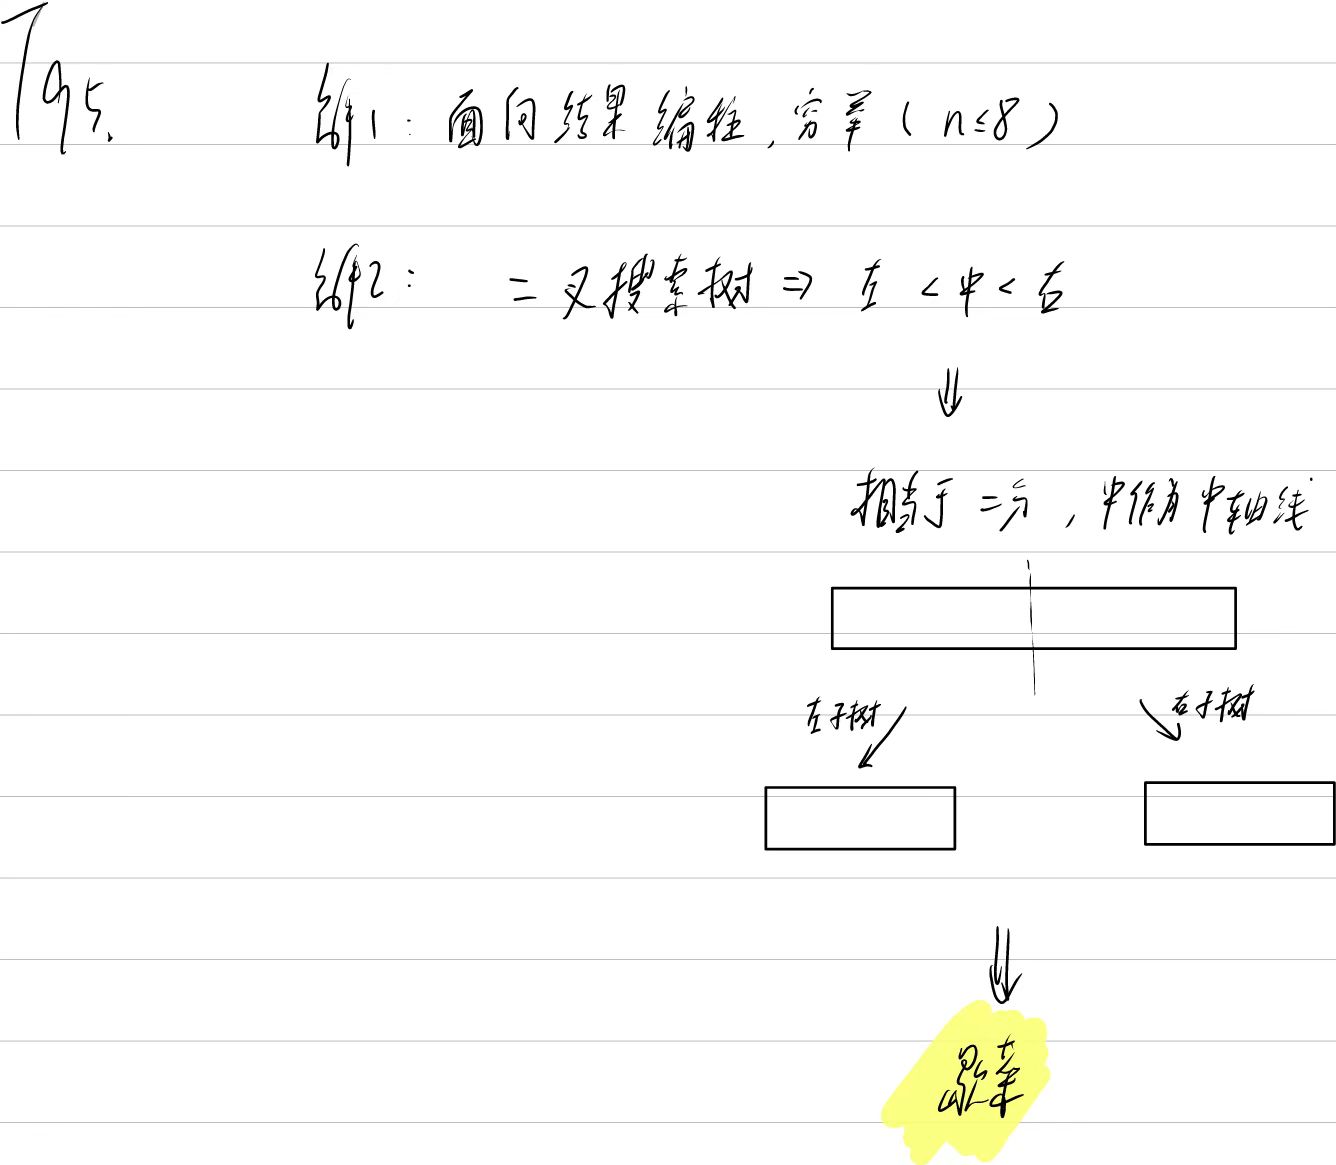 T95.
解1：面向结果编程，穷举（n≤8）
解2： 二叉搜索树 ⇒ 左 < 中 < 右
⇓
相当于二分，中作为中轴线
左子树 右子树
⇓